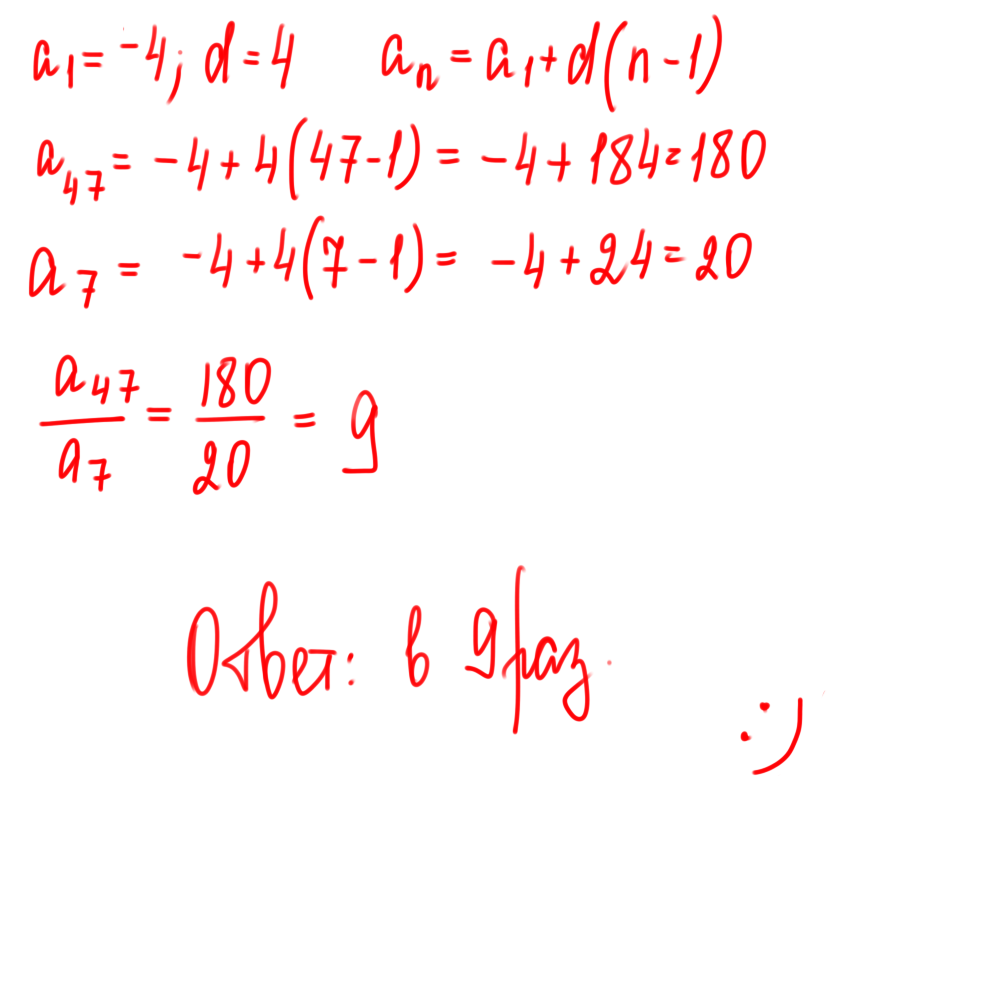 a₁ = -4; d = 4 aₙ = a₁ + d(n - 1)
a₄₇ = -4 + 4(47 - 1) = -4 + 184 = 180
a₇ = -4 + 4(7 - 1) = -4 + 24 = 20
a₄₇/a₇ = 180/20 = 9
Ответ: в 9 раз.
:)